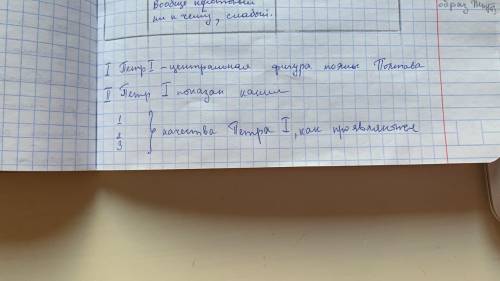 Вообще
ни к чему, слабый.
образ
I Петр I - центральная фигура поэмы Полтава
II Петр I показан каким
1
2
3
качества Петра I, как проявляются